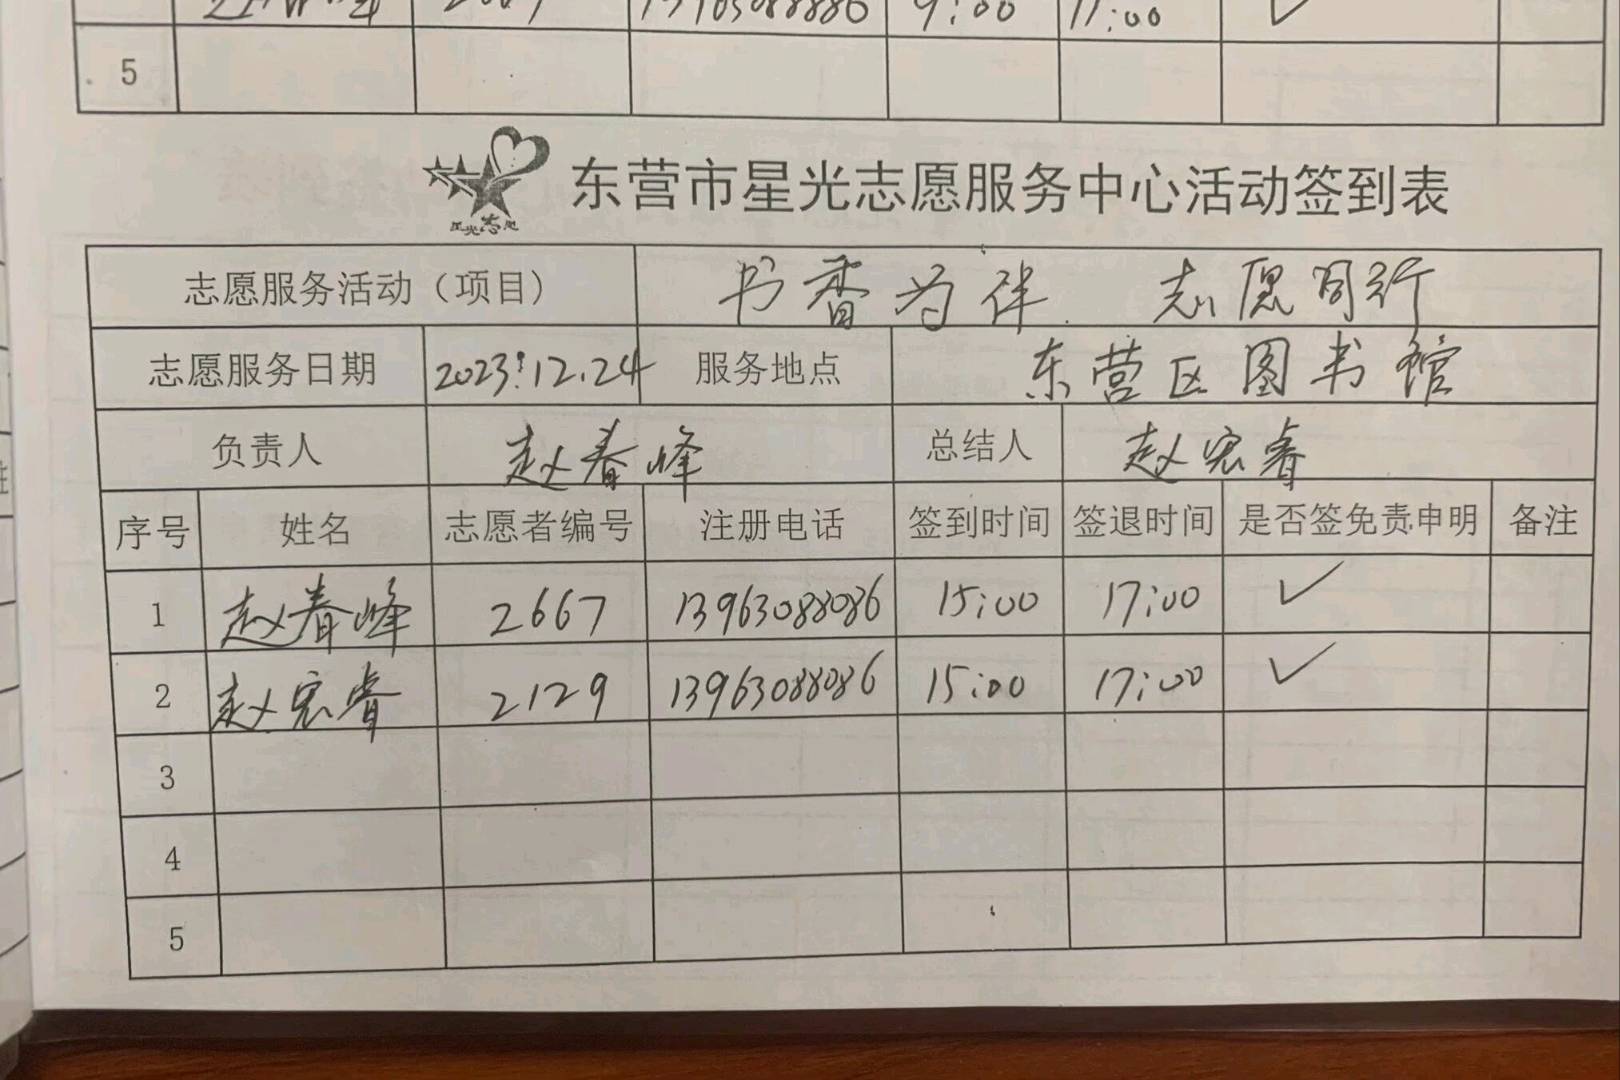 9:00 17:00 ✓
5
星光志愿
东营市星光志愿服务中心活动签到表
志愿服务活动（项目） 书香为伴 志愿同行
志愿服务日期 2023.12.24 服务地点 东营区图书馆
负责人 赵春峰 总结人 赵宏睿
序号 姓名 志愿者编号 注册电话 签到时间 签退时间 是否签免责申明 备注
1 赵春峰 2667 13963088086 15:00 17:00 ✓
2 赵宏睿 2129 13963088086 15:00 17:00 ✓
3
4
5